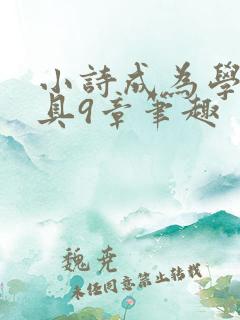 小詩成為學
具9章筆趣
魏尭
未経同意禁止转载